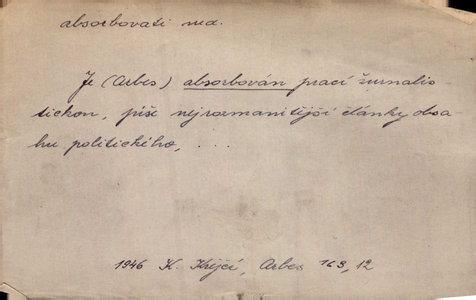 absorbovati ned.
Je (Arbes) absorbován prací žurnalis-
tickou, píše nejrozmanitější články obsa-
hu politického, ...
1946 K. Krejčí, Arbes 169, 12